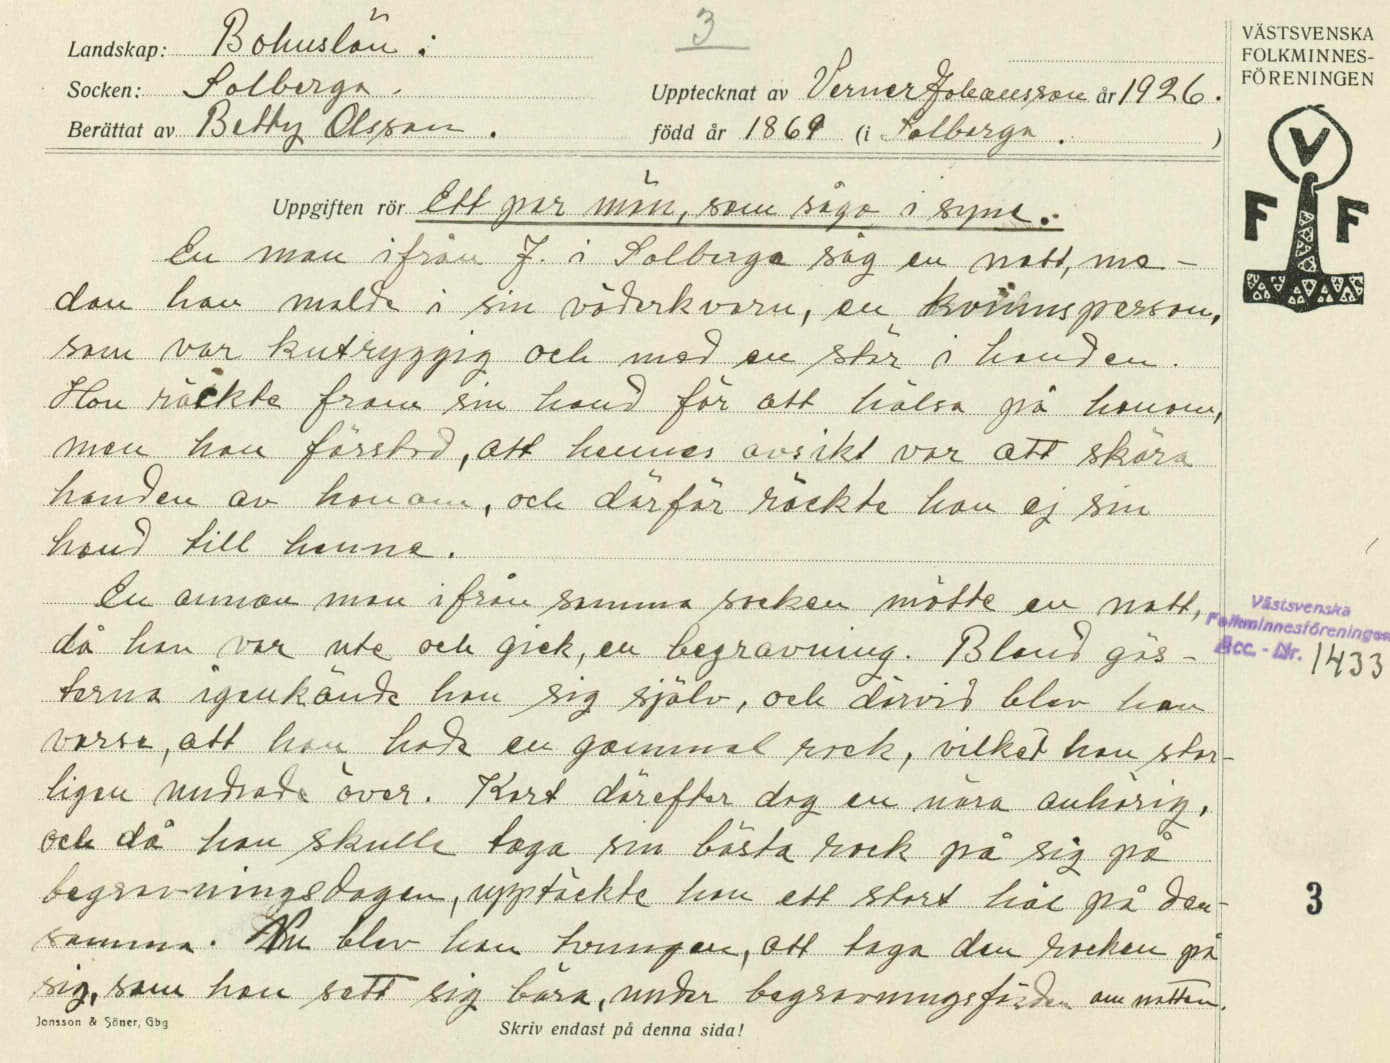 3
Landskap: Bohuslän :
Socken: Solberga .
Berättat av Betty Olsson .
Upptecknat av Verner Johansson år 1926.
född år 1869 (i Solberga . )
VÄSTSVENSKA
FOLKMINNES-
FÖRENINGEN
V
F F
Uppgiften rör Ett par män, som sågo i syne.
En man ifrån J. i Solberga såg en natt, me-
dan han malde i sin väderkvarn, en kvinnsperson,
som var kutryggig och med en stör i handen.
Hon räckte fram sin hand för att hälsa på honom,
men han förstod, att hennes avsikt var att skära
handen av honom, och därför räckte han ej sin
hand till henne.
En annan man ifrån samma socken mötte en natt,
då han var ute och gick, en begravning. Bland gäs-
terna igenkände han sig själv, och därvid blev han
varse, att han hade en gammal rock, vilket han stor-
ligen undrade över. Kort därefter dog en nära anhörig,
och då han skulle taga sin bästa rock på sig på
begravningsdagen, upptäckte han ett stort hål på den-
samma. Nu blev han tvungen, att taga den rocken på
sig, som han sett sig bära, under begravningsfärden om natten.
Västsvenska
Folkminnesföreningen
Acc. - Nr. 1433
3
Jonsson & Söner, Gbg
Skriv endast på denna sida!